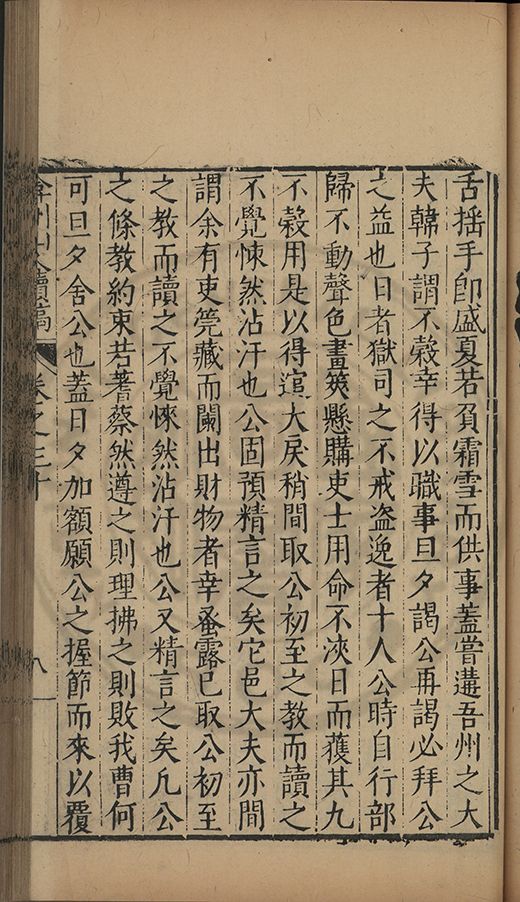 舌揺手卽盛夏若負霜雪而供事蓋嘗遘吾州之大
夫韓子謂不榖幸得以職事旦夕謁公再謁必拜公
之益也日者獄司之不戒盗逸者十人公時自行部
歸不動聲色畫筴懸購吏士用命不浹日而獲其九
不榖用是以得逭大戾稍間取公初至之教而讀之
不覺悚然沾汗也公固預精言之矣它邑大夫亦間
謂余有吏筦藏而闌出財物者幸蚤露已取公初至
之教而讀之不覺悚然沾汗也公又精言之矣凢公
之條教約束若蓍蔡然遵之則理拂之則敗我曹何
可旦夕舍公也蓋日夕加額願公之握節而來以覆
弇州山人續稿 卷之三十 八